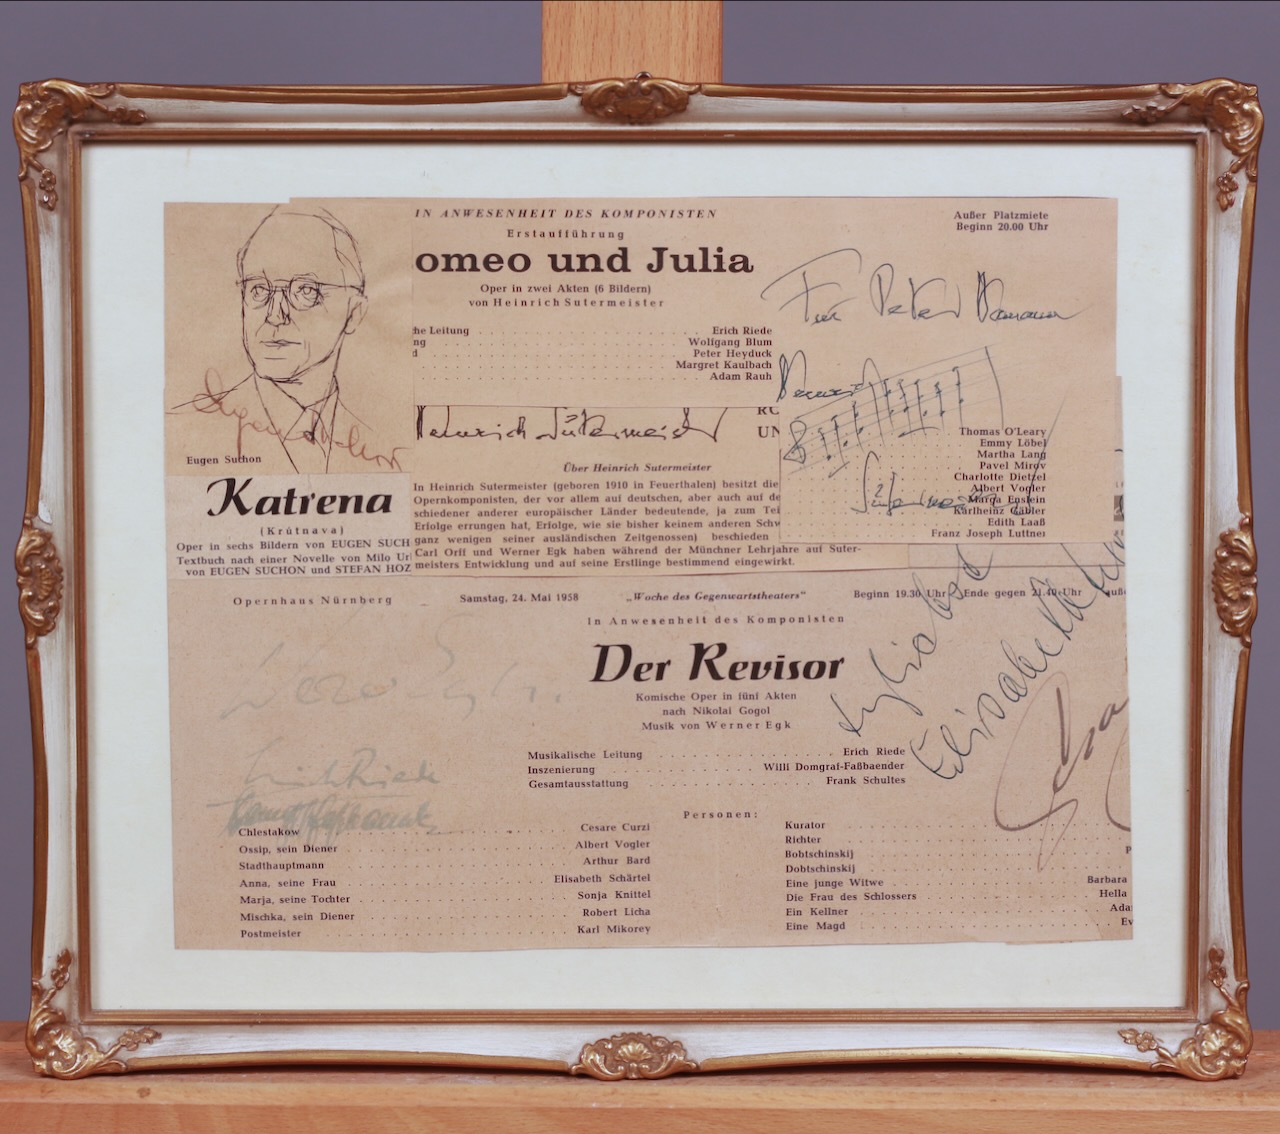 IN ANWESENHEIT DES KOMPONISTEN
Erstaufführung
omeo und Julia
Oper in zwei Akten (6 Bildern)
von Heinrich Sutermeister
Außer Platzmiete
Beginn 20.00 Uhr
he Leitung Erich Riede
ng Wolfgang Blum
d Peter Heyduck
Margret Kaulbach
Adam Rauh
Für Peter
Heinrich Sutermeister
RO
UN
Eugen Suchoň
Eugen Suchon
Katrena
(Krútnava)
Oper in sechs Bildern von EUGEN SUCH
Textbuch nach einer Novelle von Milo Ur
von EUGEN SUCHON und STEFAN HOZ
Über Heinrich Sutermeister
In Heinrich Sutermeister (geboren 1910 in Feuerthalen) besitzt die
Opernkomponisten, der vor allem auf deutschen, aber auch auf de
schiedener anderer europäischer Länder bedeutende, ja zum Tei
Erfolge errungen hat, Erfolge, wie sie bisher keinem anderen Schw
ganz wenigen seiner ausländischen Zeitgenossen) beschieden
Carl Orff und Werner Egk haben während der Münchner Lehrjahre auf Suter-
meisters Entwicklung und auf seine Erstlinge bestimmend eingewirkt.
Thomas O'Leary
Emmy Löbel
Martha Lang
Pavel Mirov
Charlotte Dietzel
Albert Vogler
Marga Enslein
Karlheinz Gabler
Edith Laaß
Franz Joseph Luttner
Sutermeister
Opernhaus Nürnberg Samstag, 24. Mai 1958 „Woche des Gegenwartstheaters“ Beginn 19.30 Uhr Ende gegen 21.40 Uhr
In Anwesenheit des Komponisten
Der Revisor
Komische Oper in fünf Akten
nach Nikolai Gogol
Musik von Werner Egk
Elisabeth
Erich Riede
Musikalische Leitung Erich Riede
Inszenierung Willi Domgraf-Faßbaender
Gesamtausstattung Frank Schultes
Personen:
Chlestakow Cesare Curzi
Ossip, sein Diener Albert Vogler
Stadthauptmann Arthur Bard
Anna, seine Frau Elisabeth Schärtel
Marja, seine Tochter Sonja Knittel
Mischka, sein Diener Robert Licha
Postmeister Karl Mikorey
Kurator
Richter
Bobtschinskij P
Dobtschinskij
Eine junge Witwe Barbara
Die Frau des Schlossers Hella
Ein Kellner Ada
Eine Magd Ev